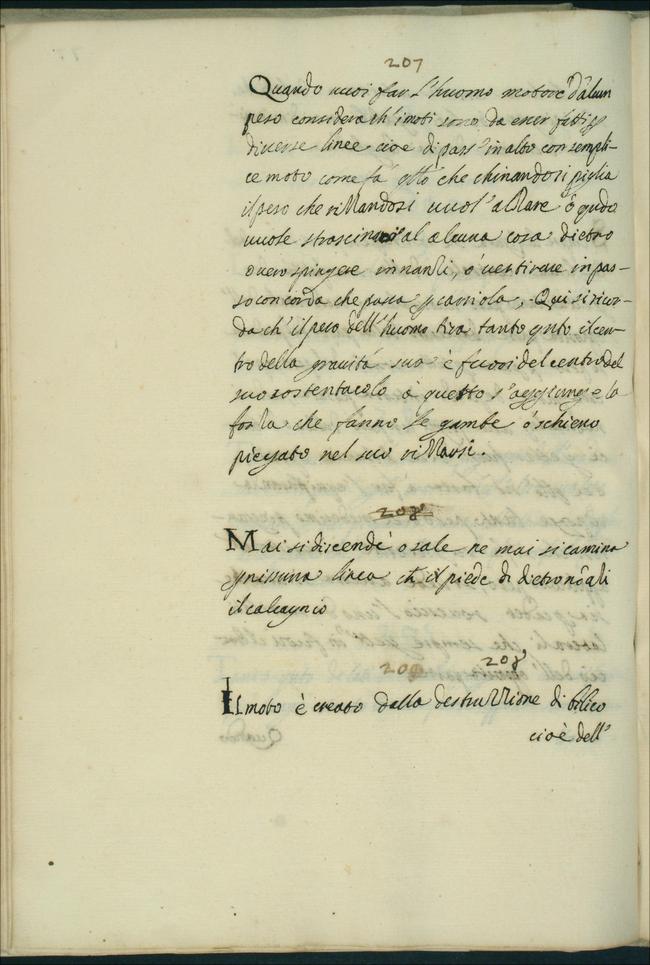 207
Quando uuoi far l'huomo motore d'alcun
peso considera ch'i moti sono da esser fatti p
diuerse linee cioe di basso in alto con sempli-
ce moto come fá che chinandosi piglia
il peso che rizzandosi uuol' alzare ò qndo
uuole strascinarsi al alcuna cosa dietro
ouero spingere innanzi, ó uer tirare in bas-
so con corda che passa p carriola, Qui si ricor-
da ch'il peso dell'huomo tira tanto qnto il cen-
tro della grauitá sua è fuori del centro del
suo sostentacolo à questo s'aggiunge la
forza che fanno le gambe ó schiena
piegato nel suo rizzarsi.
208
Mai si discende o sale ne mai si camina
p nissuna linea ch il piede di dietro nó alzi
il calcagnio
209 208
Il moto è creato dalla destruzzione di bilico
cioè dell'
Quando